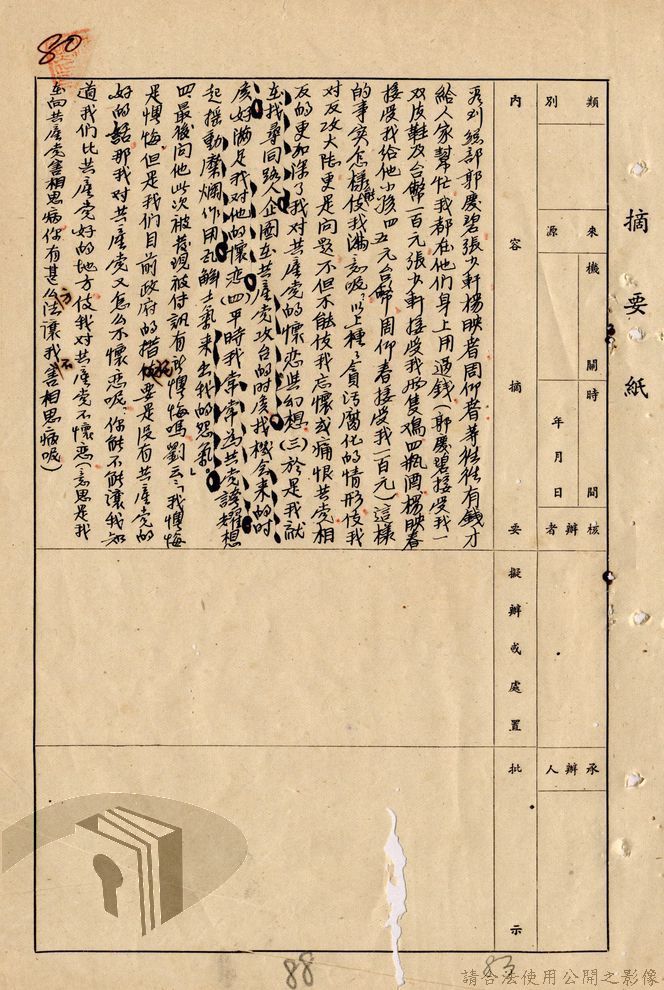 80
摘要紙
類別
來源
機關
時間
年月日
核辦者
承辦人
內容摘要
擬辦或處置
批示
司令部郭慶碧張少軒楊映者周仰者等往往有錢才
給人家幫忙我都在他們身上用過錢(郭慶碧接受我一
双皮鞋及台幣一百元張少軒接受我兩隻鷄四瓶酒楊映春
接受我給他小孩四五元台幣周仰春接受我一百元)這樣
的事实怎樣能使我满意呢?以上種々貪污腐化的情形使我
對反攻大陸更是问題不但不能使我忘懷或痛恨共党相
反的更加深了我对共產党的懷恋与幻想(三)於是我就
在找尋同路人企圖在共產党攻台的时候找機会来的时
候好满足我对他的懷恋(四)平時我常常為共党誇耀想
起摇動糜爛作用瓦解士氣来出我的怨氣。」
四、最後问他此次被發現被付訊有所懊悔嗎劉云:「我懊悔
是懊悔但是我们目前政府的措施要是没有共產党的
好的話那我对共產党又怎么不懷恋呢?你能不能讓我知
道我们比共產党好的地方使我对共產党不懷恋(意思是我
在向共產党害相思病你有甚么方法讓我不害相思病呢)
88
83
請合法使用公開之影像